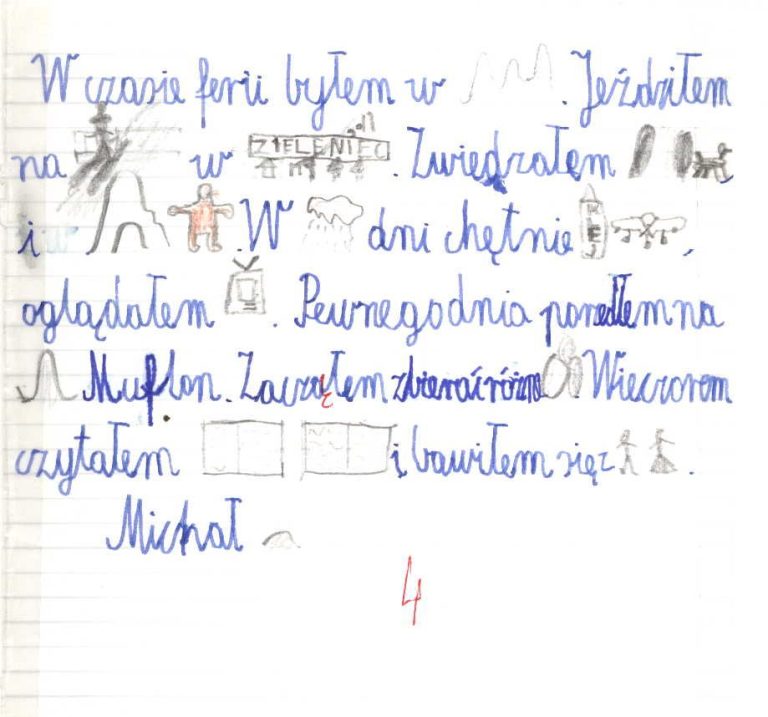 W czasie ferii byłem w . Jeździłem
na w ZIELENIEC . Zwiedzałem ,
i . W dni chętnie ,
oglądałem . Pewnego dnia poszedłem na
Muflon. Zacząłem zbierać różne . Wieczorem
czytałem i bawiłem się z .
Michał
4